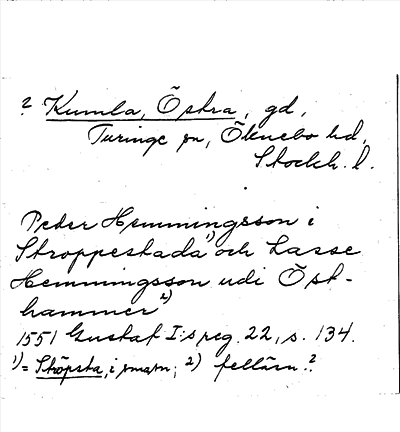 ? Kumla, Östra, gd,
Turinge sn, Öknebo hd,
Stockh. l.
Peder Hemmingsson i
Stroppestada 1) och Lasse
Hemmingsson udi Öst-
hammer 2)
1551 Gustaf I:s reg. 22, s. 134.
1) = Ströpsta, i smasn; 2) fellärn.?